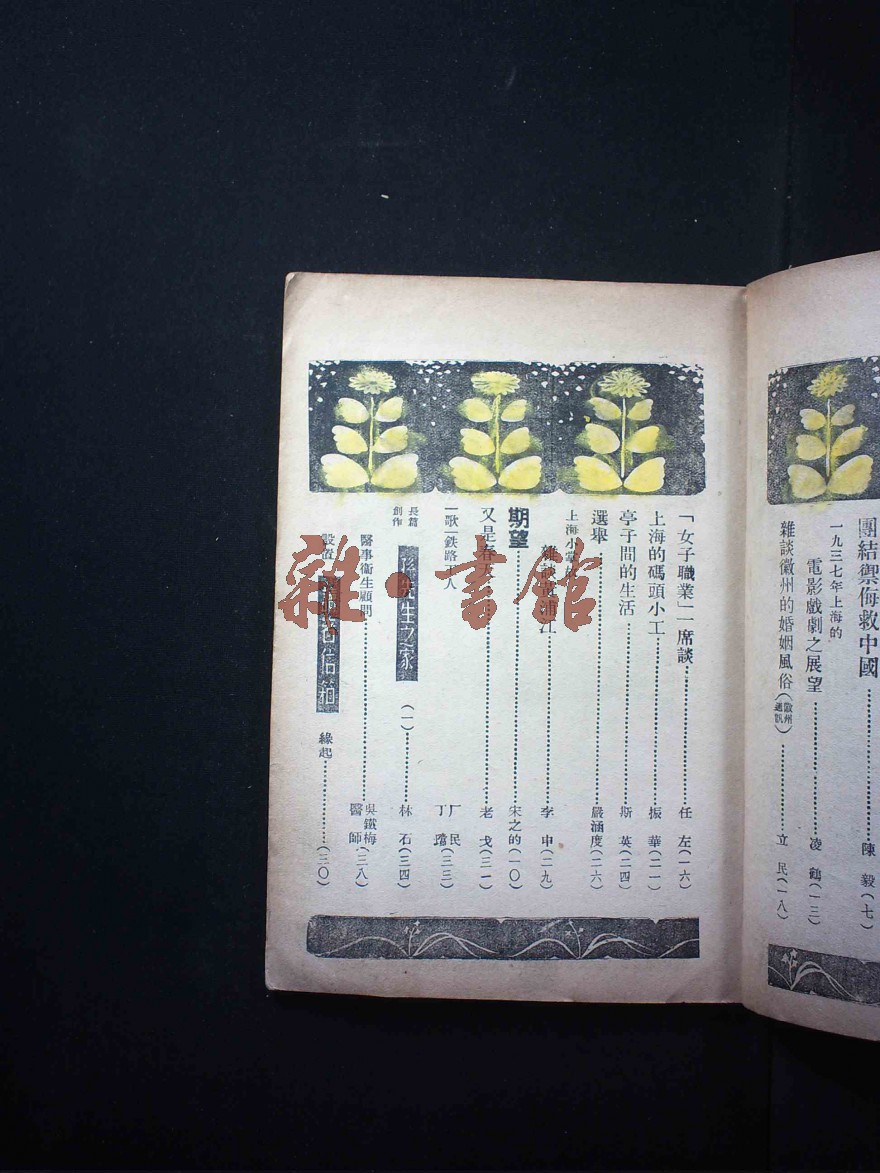 團結禦侮救中國……陳毅（七）
一九三七年上海的
電影戲劇之展望……凌鶴（一三）
雜談徽州的婚姻風俗（徽州通訊）……立民（一八）
「女子職業」一席談……任左（一六）
上海的碼頭小工……振華（二一）
亭子間的生活……斯英（二四）
選舉……嚴涵度（二六）
上海小
江……李申（二九）
期望……宋之的（一〇）
又是春天……老戈（三一）
一歌一鐵路工人……厂民 丁璔（三三）
長篇創作 先生之家（一）……林石（三四）
醫事衛生顧問……吳鐵梅醫師（三八）
設置 信箱 緣起……（三〇）
雜·書館